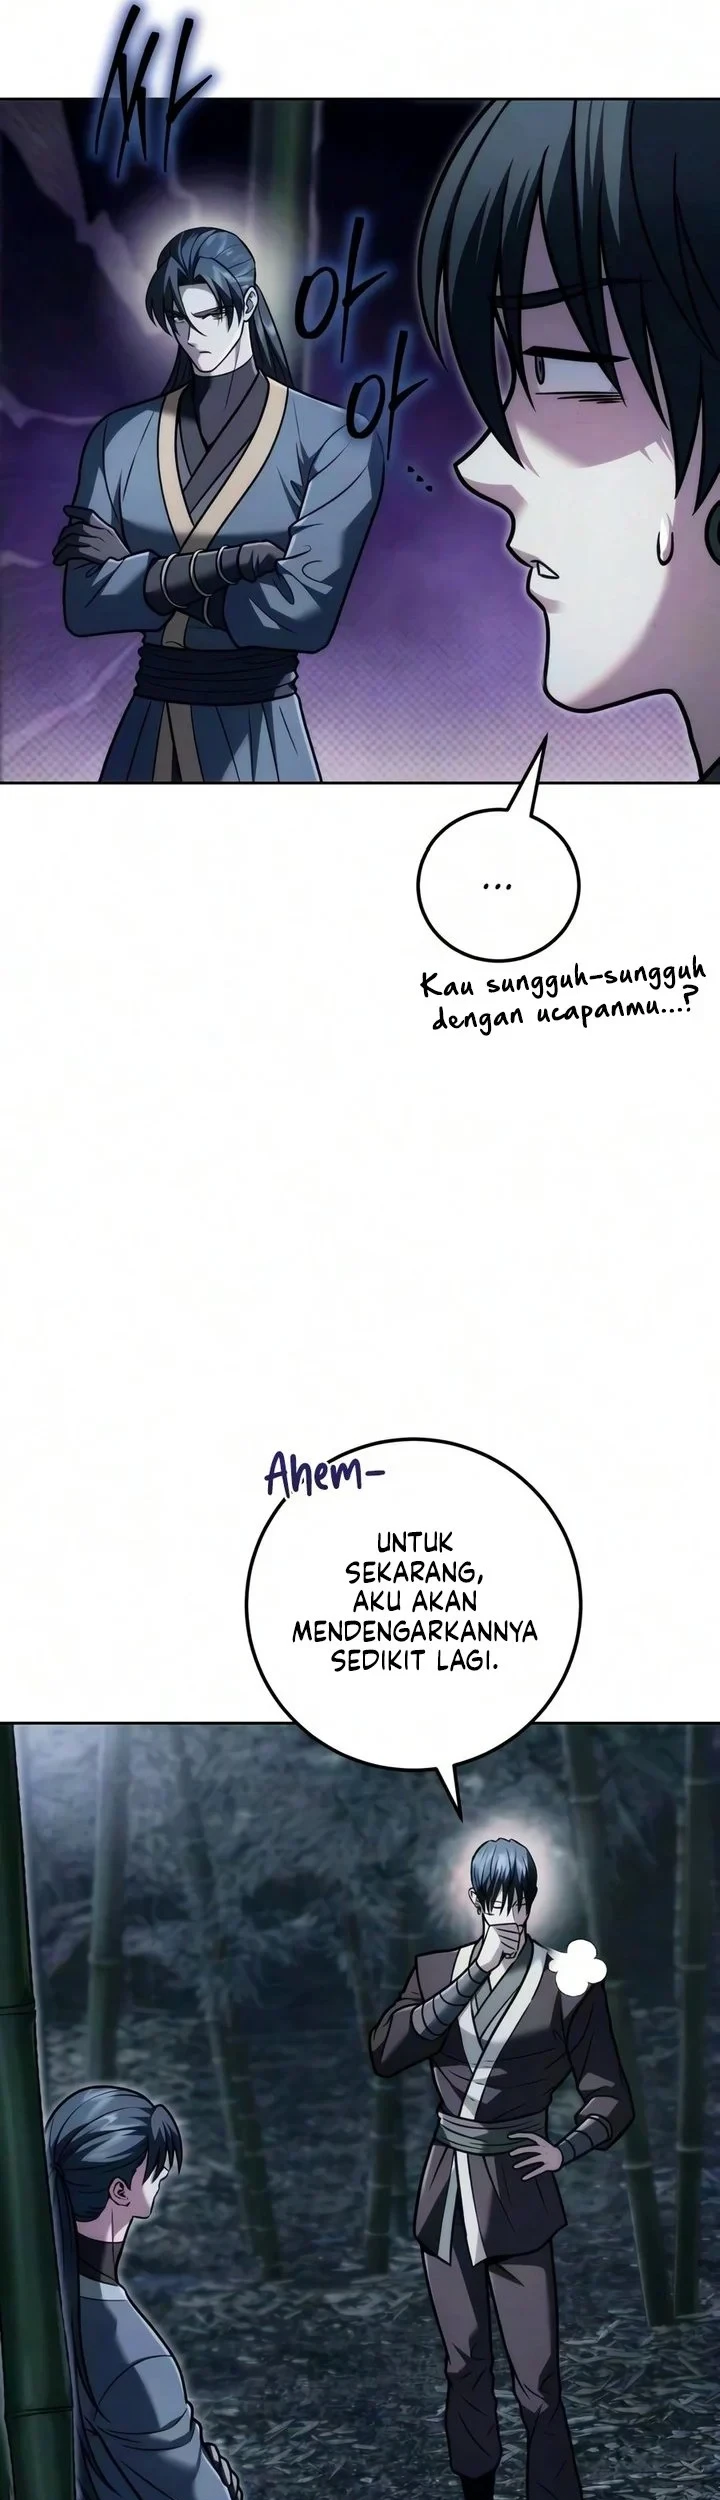 ...
Kau sungguh-sungguh
dengan ucapanmu...?
Ahem-
UNTUK
SEKARANG,
AKU AKAN
MENDENGARKANNYA
SEDIKIT LAGI.